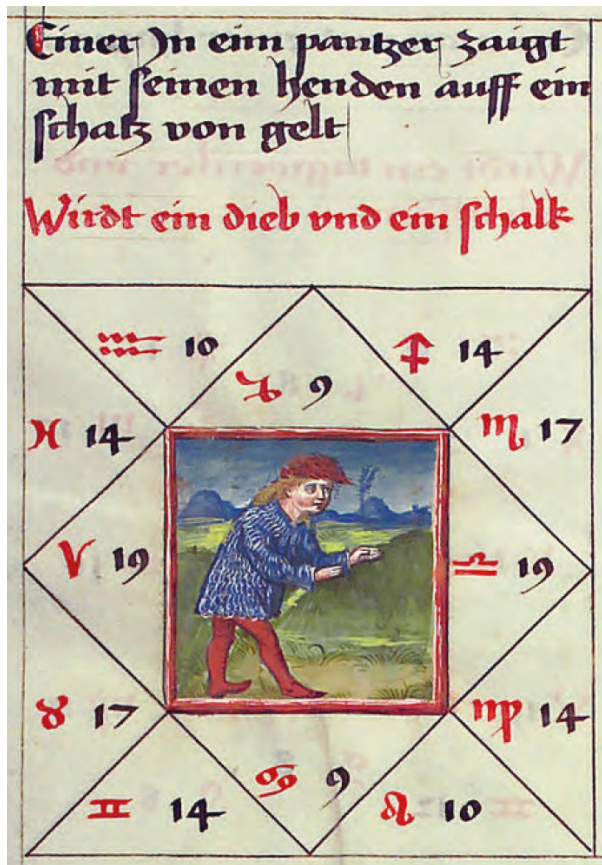 Einer Jn eim pantzer zaigt
mit seinen henden auff ein
schatz von gelt
Wirdt ein dieb vnd ein schalk
♒ 10
♑ 9
♐ 14
♓ 14
♏ 17
♈ 19
♎ 19
♉ 17
♍ 14
♊ 14
♋ 9
♌ 10